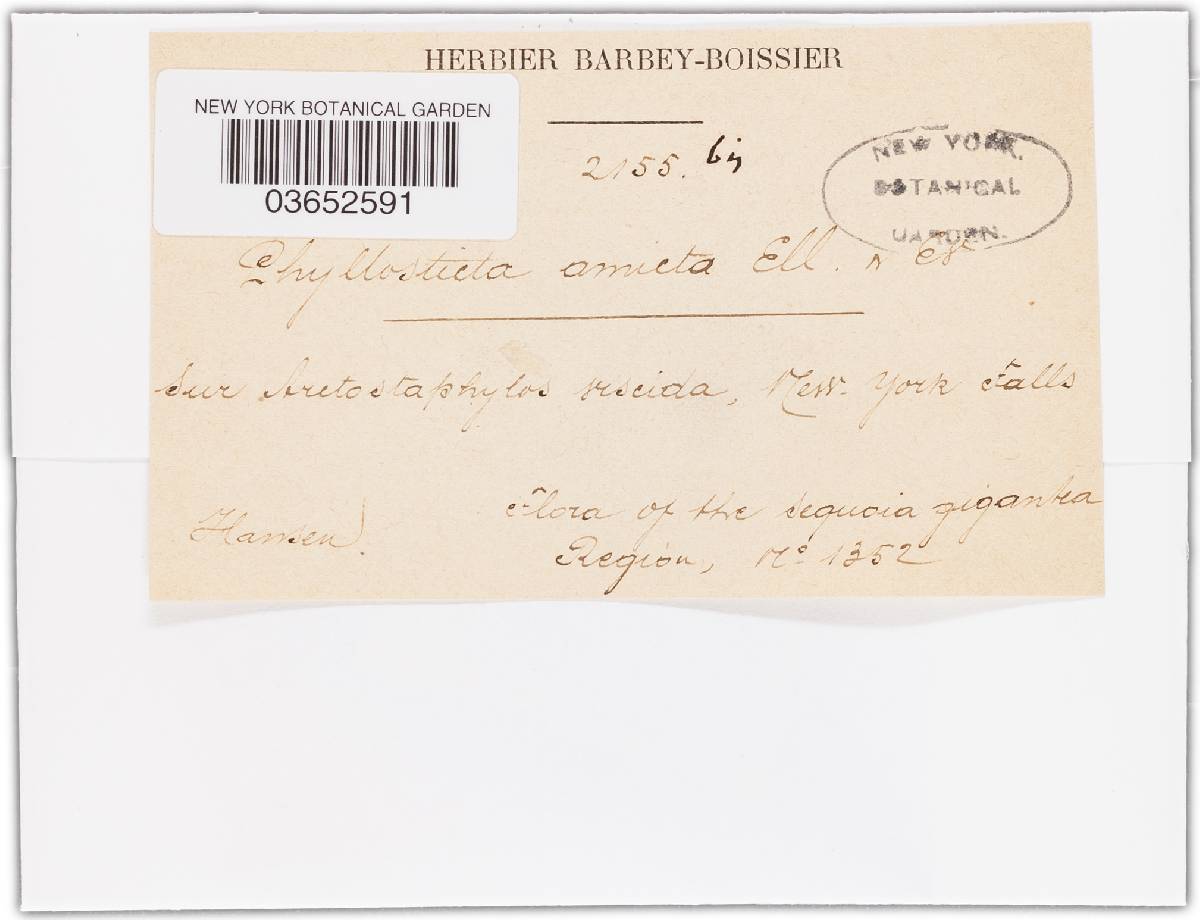 HERBIER BARBEY-BOISSIER
NEW YORK BOTANICAL GARDEN
03652591
2155. bis
NEW YORK
BOTANICAL
GARDEN.
Phyllosticta amicta Ell. & Ev
Sur Arctostaphylos viscida, New-York Falls
Hansen!
Flora of the Sequoia gigantea
Region, No 1352